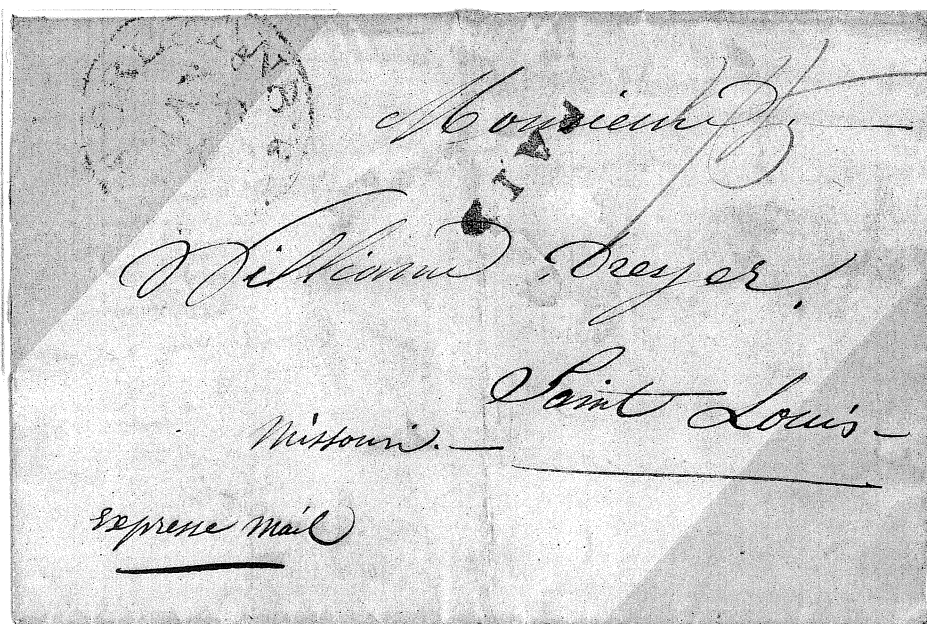 Monsieur
William Dreyer.
Saint Louis
Missouri.
Expresse Mail